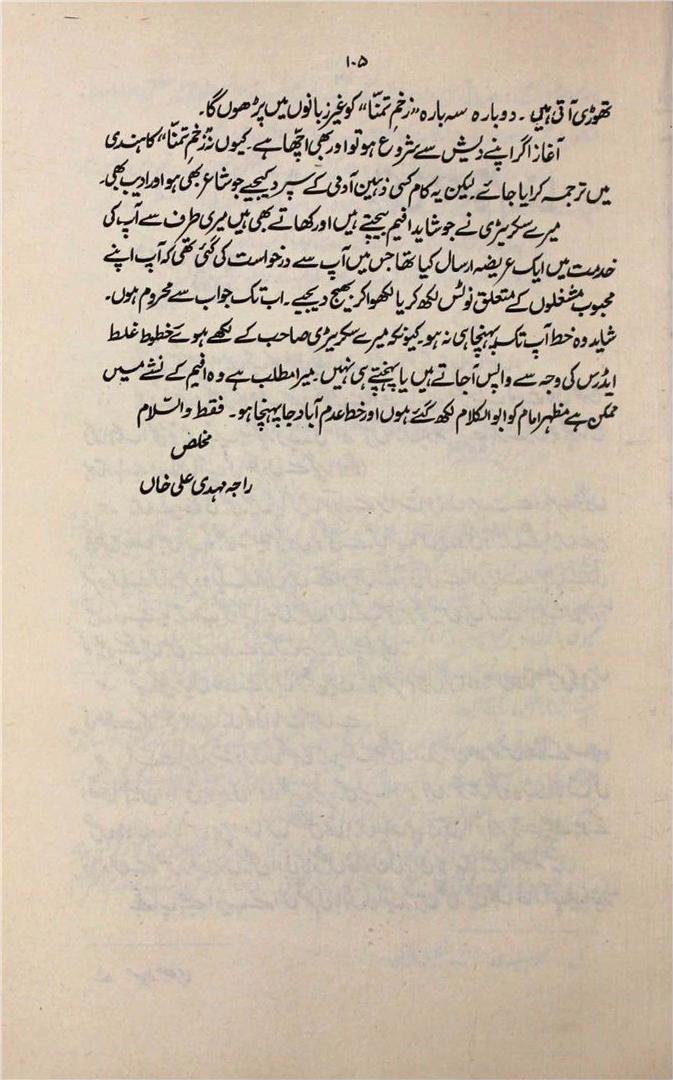 ۱۰۵
تھوڑی آتی ہیں ۔ دوبارہ سہ بارہ "زخمِ تمنّا" کو غیر زبانوں میں پڑھوں گا۔
آغاز اگر اپنے دیش سے شروع ہو تو اور بھی اچھّا ہے ۔ کیوں نہ "زخمِ تمنّا" کا ہندی
میں ترجمہ کرایا جائے ۔ لیکن یہ کام کسی ذہین آدمی کے سپرد کیجیے جو شاعر بھی ہو اور ادیب بھی۔
میرے سکریٹری نے جو شاید افیم بیچتے ہیں اور کھاتے بھی ہیں میری طرف سے آپ کی
خدمت میں ایک عریضہ ارسال کیا تھا جس میں آپ سے درخواست کی گئی تھی کہ آپ اپنے
محبوب مشغلوں کے متعلق نوٹس لکھ کر یا لکھوا کر بھیج دیجیے ۔ اب تک جواب سے محروم ہوں۔
شاید وہ خط آپ تک پہنچا ہی نہ ہو ۔ کیونکہ میرے سکریٹری صاحب کے لکھے ہوئے خطوط غلط
ایڈرس کی وجہ سے واپس آجاتے ہیں یا پہنچتے ہی نہیں ۔ میرا مطلب ہے وہ افیم کے نشے میں
ممکن ہے مظہر امام کو ابوالکلام لکھ گئے ہوں اور خط عدم آباد جا پہنچا ہو ۔ فقط والسّلام
مخلص
راجہ مہدی علی خاں